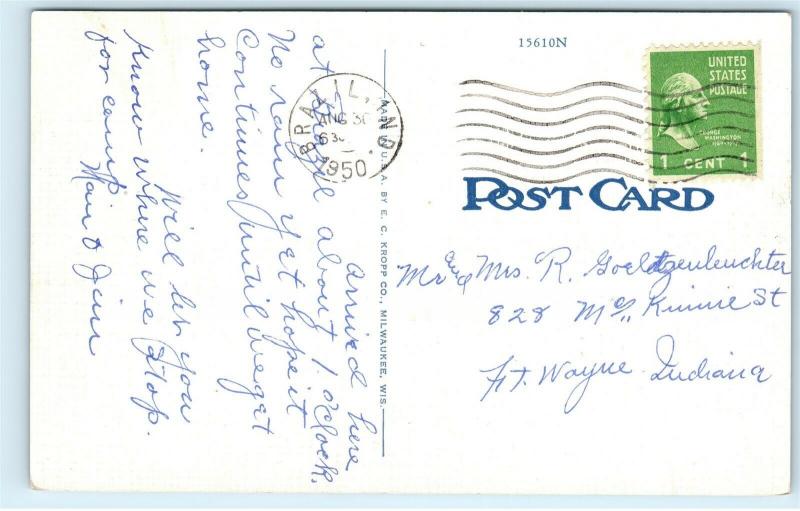 15610N
UNITED
STATES
POSTAGE
GEORGE
WASHINGTON
1 CENT 1
BRAZIL, IND.
AUG 30
630
1950
POST CARD
Mr and Mrs. R. Goeltzenleuchter
828 Mc Kinnie St
Ft. Wayne Indiana
MADE IN U.S.A. BY E. C. KROPP CO., MILWAUKEE, WIS.
arrived here
at about 1 o'clock.
No rain yet hope it
continues until we get
home.
Will let you
know where we stop.
for camp